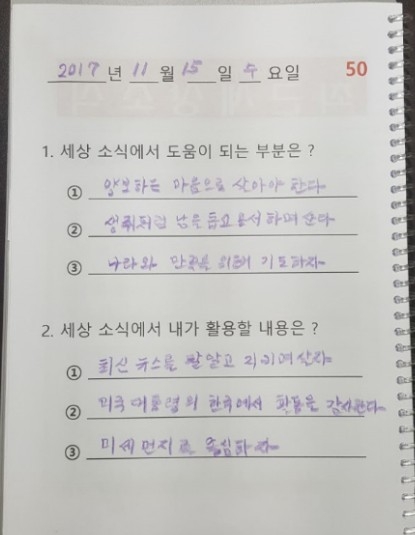 2017 년 11 월 15 일 수 요일 50
1. 세상 소식에서 도움이 되는 부분은 ?
① 양보하는 마음으로 살아야 한다
② 남을 돕고 용서하며 산다
③ 나라와 민족을 위해 기도하자
2. 세상 소식에서 내가 활용할 내용은 ?
① 최신 뉴스를 잘 알고 지키며 살자
② 미국 대통령의 한국에서 활동을 감사한다
③ 미세먼지로 조심하자